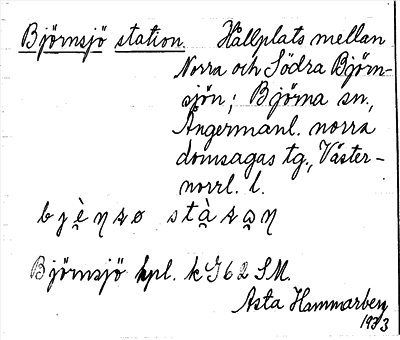 Björnsjö station. Hållplats mellan
Norra och Södra Björn-
sjön; Björna sn.,
Ångermanl. norra
domsagas tg., Väster-
norrl. l.
Björnsjö hpl. k J62 SM.
Asta Hammarberg
1933